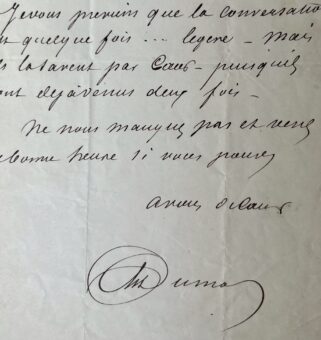 Je vous previens que la conversatio
t quelque fois ... legere - mais
s la savent par Cœur - puisquils
ont déjà venus deux fois -
Ne nous manquez pas et venez
e bonne heure si vous pouvez
a vous de Cœur
Dumas